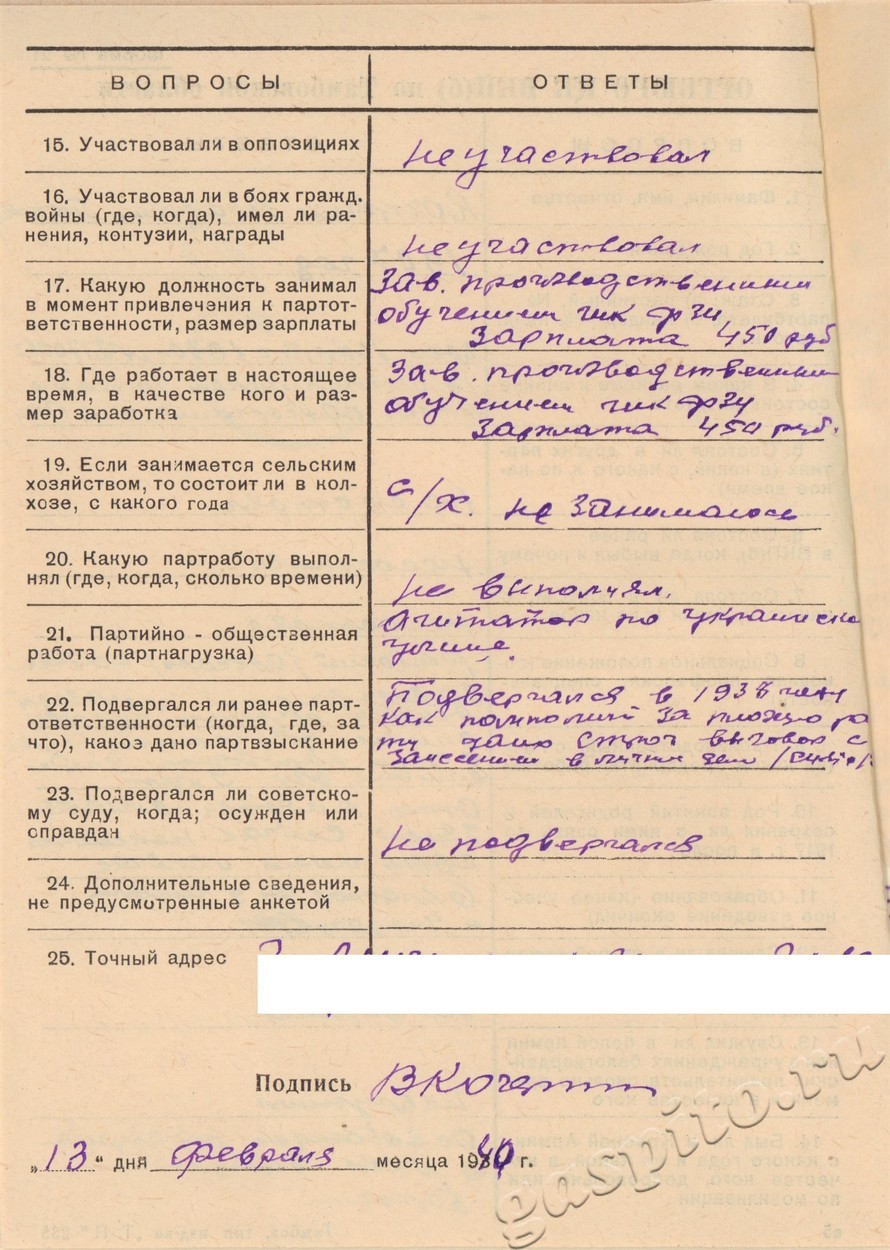 ВОПРОСЫ ОТВЕТЫ
15. Участвовал ли в оппозициях
не участвовал
16. Участвовал ли в боях гражд.
войны (где, когда), имел ли ра-
нения, контузии, награды
не участвовал
17. Какую должность занимал
в момент привлечения к партот-
ветственности, размер зарплаты
Зав. производственным
обучением фзу
Зарплата 450 руб
18. Где работает в настоящее
время, в качестве кого и раз-
мер заработка
Зав. производственным
обучением фзу
Зарплата 450 руб.
19. Если занимается сельским
хозяйством, то состоит ли в кол-
хозе, с какого года
с/х. не занимаюсь
20. Какую партработу выпол-
нял (где, когда, сколько времени)
не выполнял.
21. Партийно - общественная
работа (партнагрузка)
Агитатор по
улице.
22. Подвергался ли ранее парт-
ответственности (когда, где, за
что), какое дано партвзыскание
Подвергался в
как за плохую
строг выговор с
занесением в личн дело
23. Подвергался ли советско-
му суду, когда; осужден или
справдан
не подвергался
24. Дополнительные сведения,
не предусмотренные анкетой
25. Точный адрес
Подпись
„13“ дня февраля месяца 1940 г.
gaspito.ru